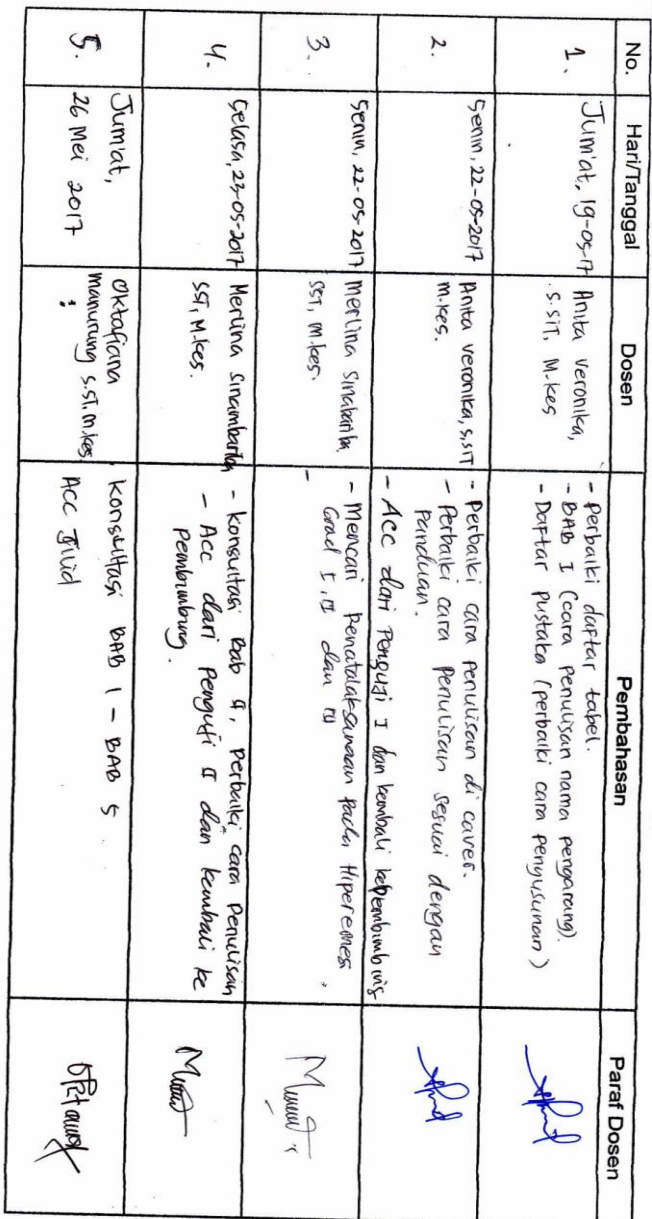 No. Hari/Tanggal Dosen Pembahasan Paraf Dosen
1. Jum'at, 19-05-17 Anita veronika,
S.SiT, M.kes
- perbaiki daftar tabel.
- BAB I (cara penulisan nama pengarang).
- Daftar pustaka (perbaiki cara penyusunan)
2. Senin, 22-05-2017 Anita veronika, S.SiT
M.kes.
- Perbaiki cara penulisan di caver.
- Perbaiki cara penulisan sesuai dengan
panduan.
- Acc dari Penguji I dan kembali kepembimbing
3. Senin, 22-05-2017 Merlina
SST, M.kes.
- Mencari Penatalaksanaan pada Hiperemesi
Grad I, II dan III
-
4. Selasa, 23-05-2017 Merlina Sinambarila
SST, M.kes.
- konsultasi Bab 4, perbaiki cara Penulisan
- Acc dari Penguji II dan kembali ke
pembimbing.
5. Jum'at,
26 Mei 2017
Oktafiana
manurung S.ST, M.kes
konsultasi BAB 1 - BAB 5
ACC Jilid